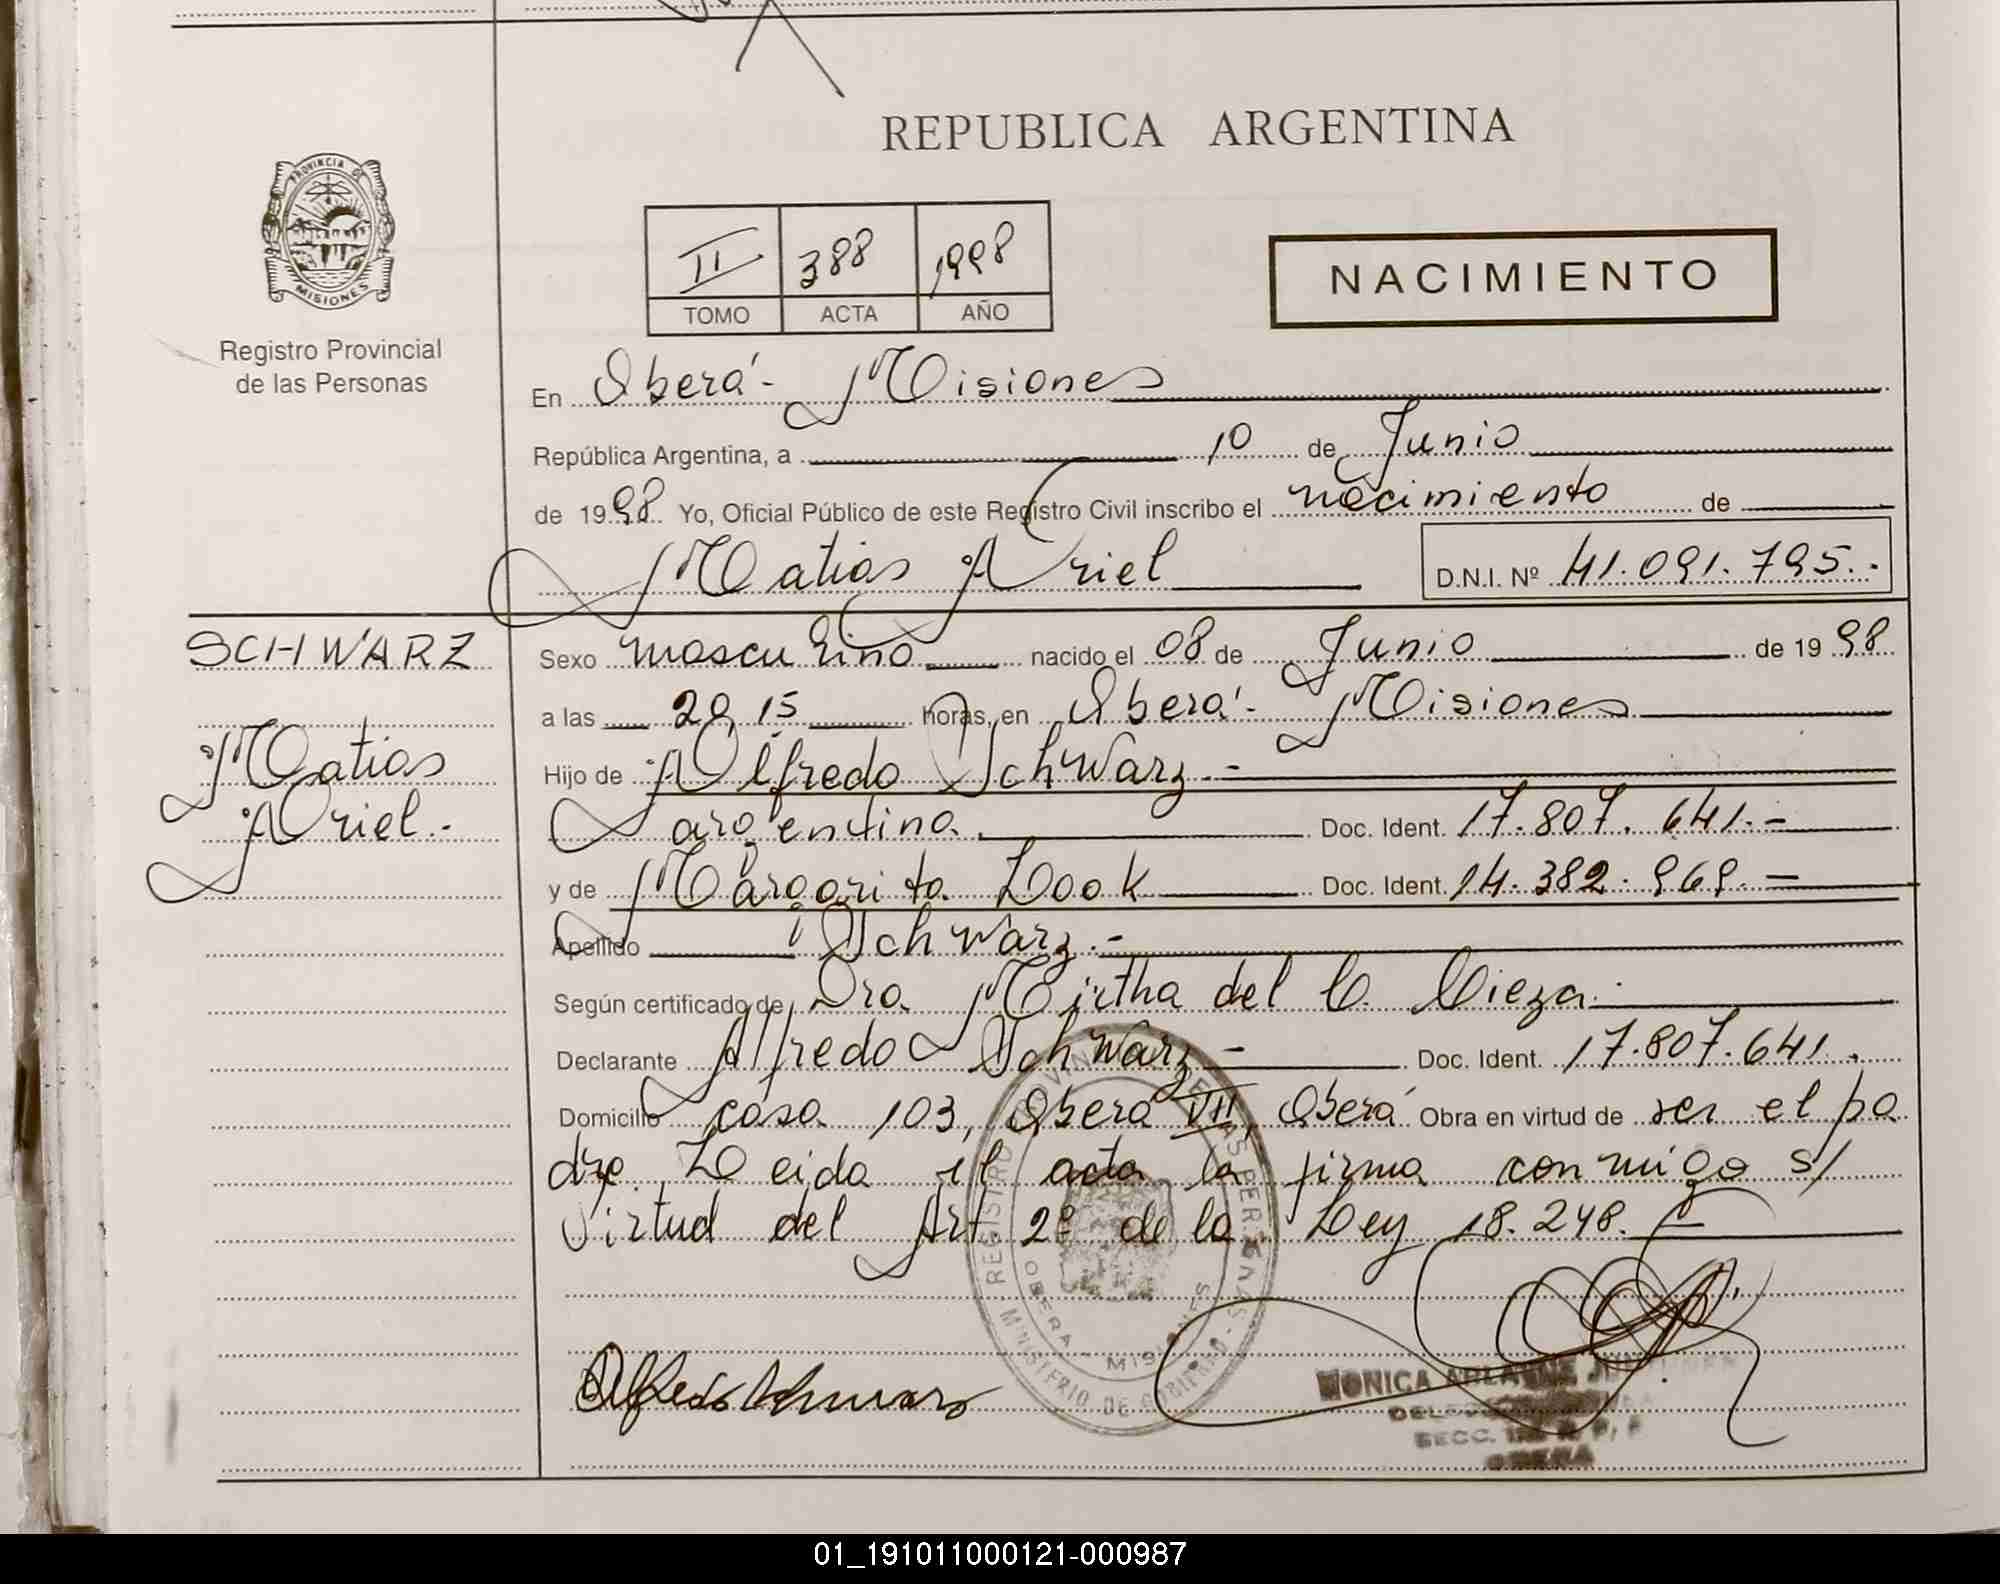 REPUBLICA ARGENTINA
PROVINCIA DE
MISIONES
Registro Provincial
de las Personas
II 388 1998
TOMO ACTA AÑO
NACIMIENTO
En Oberá - Misiones
República Argentina, a 10 de Junio
de 1998 Yo, Oficial Público de este Registro Civil inscribo el nacimiento de
Matias Ariel
D.N.I. Nº 41.091.795.-
SCHWARZ
Matias
Ariel.-
Sexo masculino nacido el 08 de Junio de 1998
a las 20 15 horas, en Oberá - Misiones
Hijo de Alfredo Schwarz.-
argentino. Doc. Ident. 17.807.641.-
y de Margarita Look Doc. Ident. 14.382.969.-
Apellido Schwarz.-
Según certificado de Dra. Mirtha del C. Cieza.
Declarante Alfredo Schwarz - Doc. Ident. 17.807.641.
Domicilio casa 103, Oberá VII, Oberá Obra en virtud de ser el pa
dre. Leida el acta la firma conmigo s/
Virtud del Art 2º de la Ley 18.248.-
REGISTRO PROVINCIAL DE LAS PERSONAS
OBERA - MISIONES
MINISTERIO DE GOBIERNO
Alfredo Schwarz
MONICA
SECC.
OBERA
01_191011000121-000987